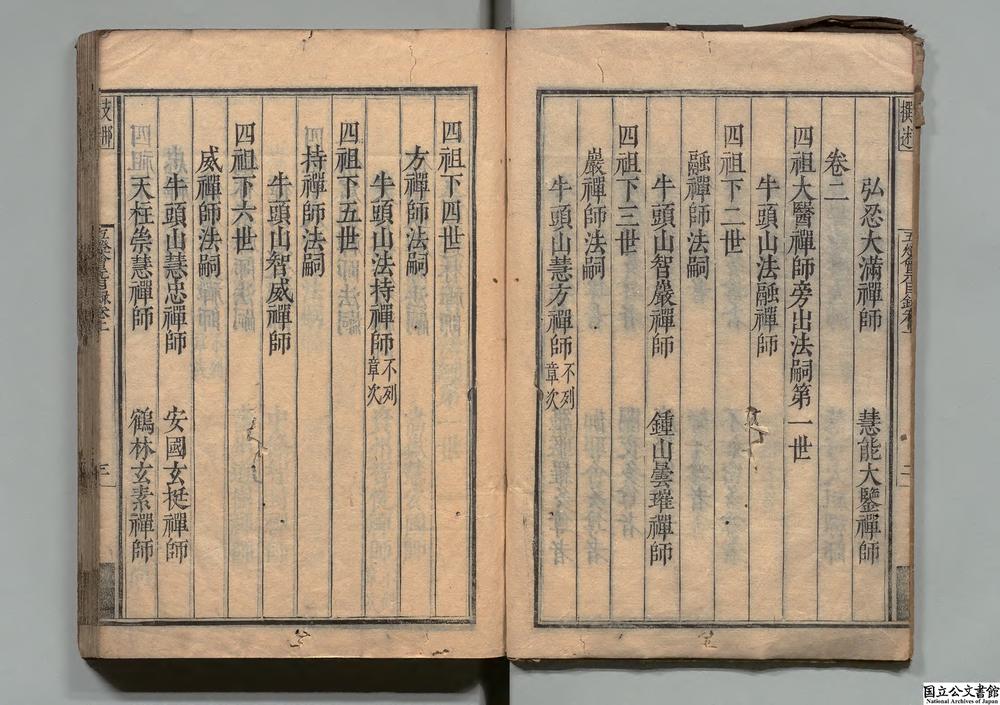 弘忍大滿禪師 慧能大鑒禪師
卷二
四祖大醫禪師旁出法嗣第一世
牛頭山法融禪師
四祖下二世
融禪師法嗣
牛頭山智巖禪師 鍾山曇璀禪師
四祖下三世
巖禪師法嗣
牛頭山慧方禪師 不列章次
四祖下四世
方禪師法嗣
牛頭山法持禪師 不列章次
四祖下五世
持禪師法嗣
牛頭山智威禪師
四祖下六世
威禪師法嗣
牛頭山慧忠禪師 安國玄挺禪師
天柱崇慧禪師 鶴林玄素禪師
三
国立公文書館
National Archives of Japan